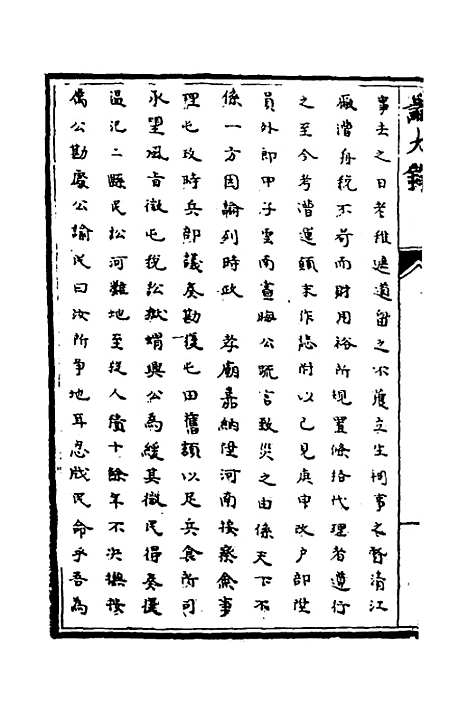 事去之日老稚遮道留之不獲立生祠事之督清江
廠漕舟稅不苛而財用裕所規置條格代理者遵行
之至今考漕運顛末作志附以己見庚申改戶部陞
員外郎甲子雲南晝晦公疏言致災之由係天下不
係一方因論列時政 孝廟嘉納陞河南按察僉事
理屯政時兵部議奏勘復屯田舊額以足兵食所司
承望風旨徵屯稅訟獄蝟興公為緩其徵民得奏復
溫汜二縣民訟河灘地至殺人積十餘年不決撫按
属公勘處公諭民曰汝所爭地耳忍戕民命乎吾為